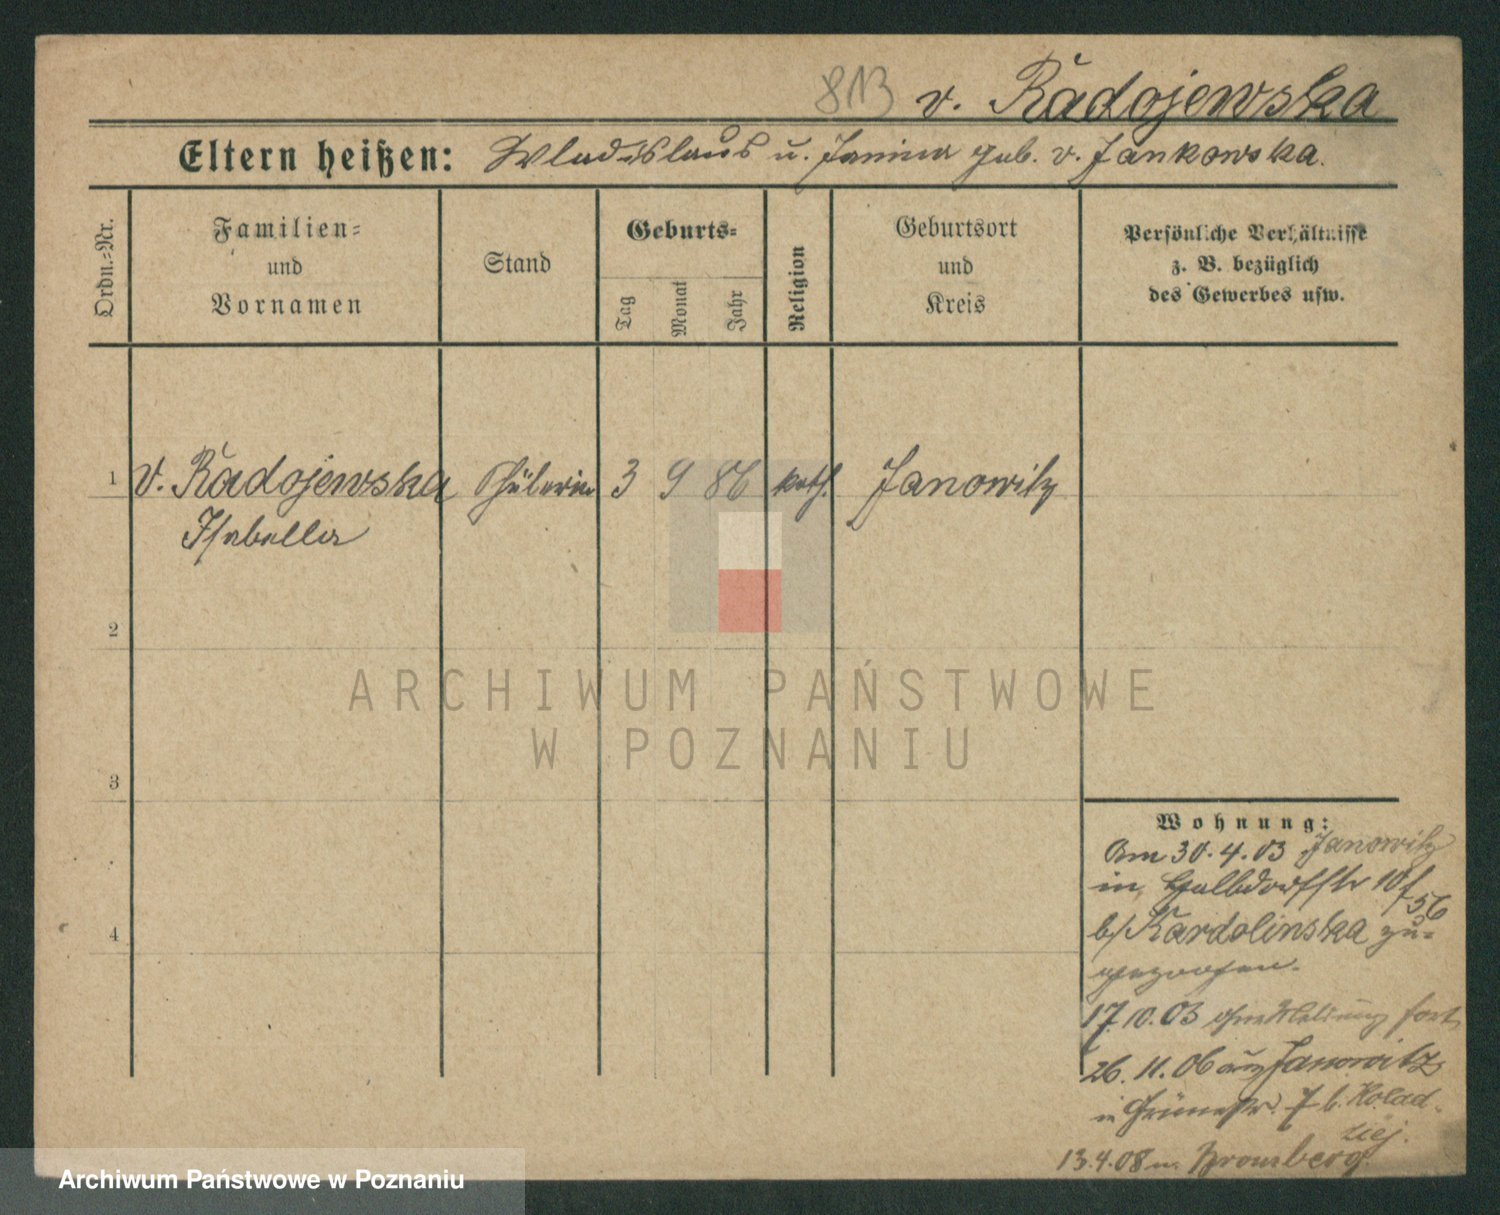 813 v. Radojewska
Eltern heißen: Wladislaus u. Janina geb. v. Jankowska.
Ordn.-Nr.
Familien-
und
Vornamen
Stand
Geburts-
Tag
Monat
Jahr
Religion
Geburtsort
und
Kreis
Persönliche Verhältnisse
z. B. bezüglich
des Gewerbes usw.
1 v. Radojewska Schülerin 3 9 86 kath. Janowitz
Isabella
2
3
4
Wohnung:
Am 30.4.03 Janowitz
in Halbdorfstr 10
56
b/ Kardolinska zu-
gezogen.
17.10.03 ohne Meldung fort
26.11.06 aus Janowitz
in Grünestr. 7 b. Kolad-
ziej.
13.4.08 n. Bromberg
ARCHIWUM PAŃSTWOWE
W POZNANIU
Archiwum Państwowe w Poznaniu